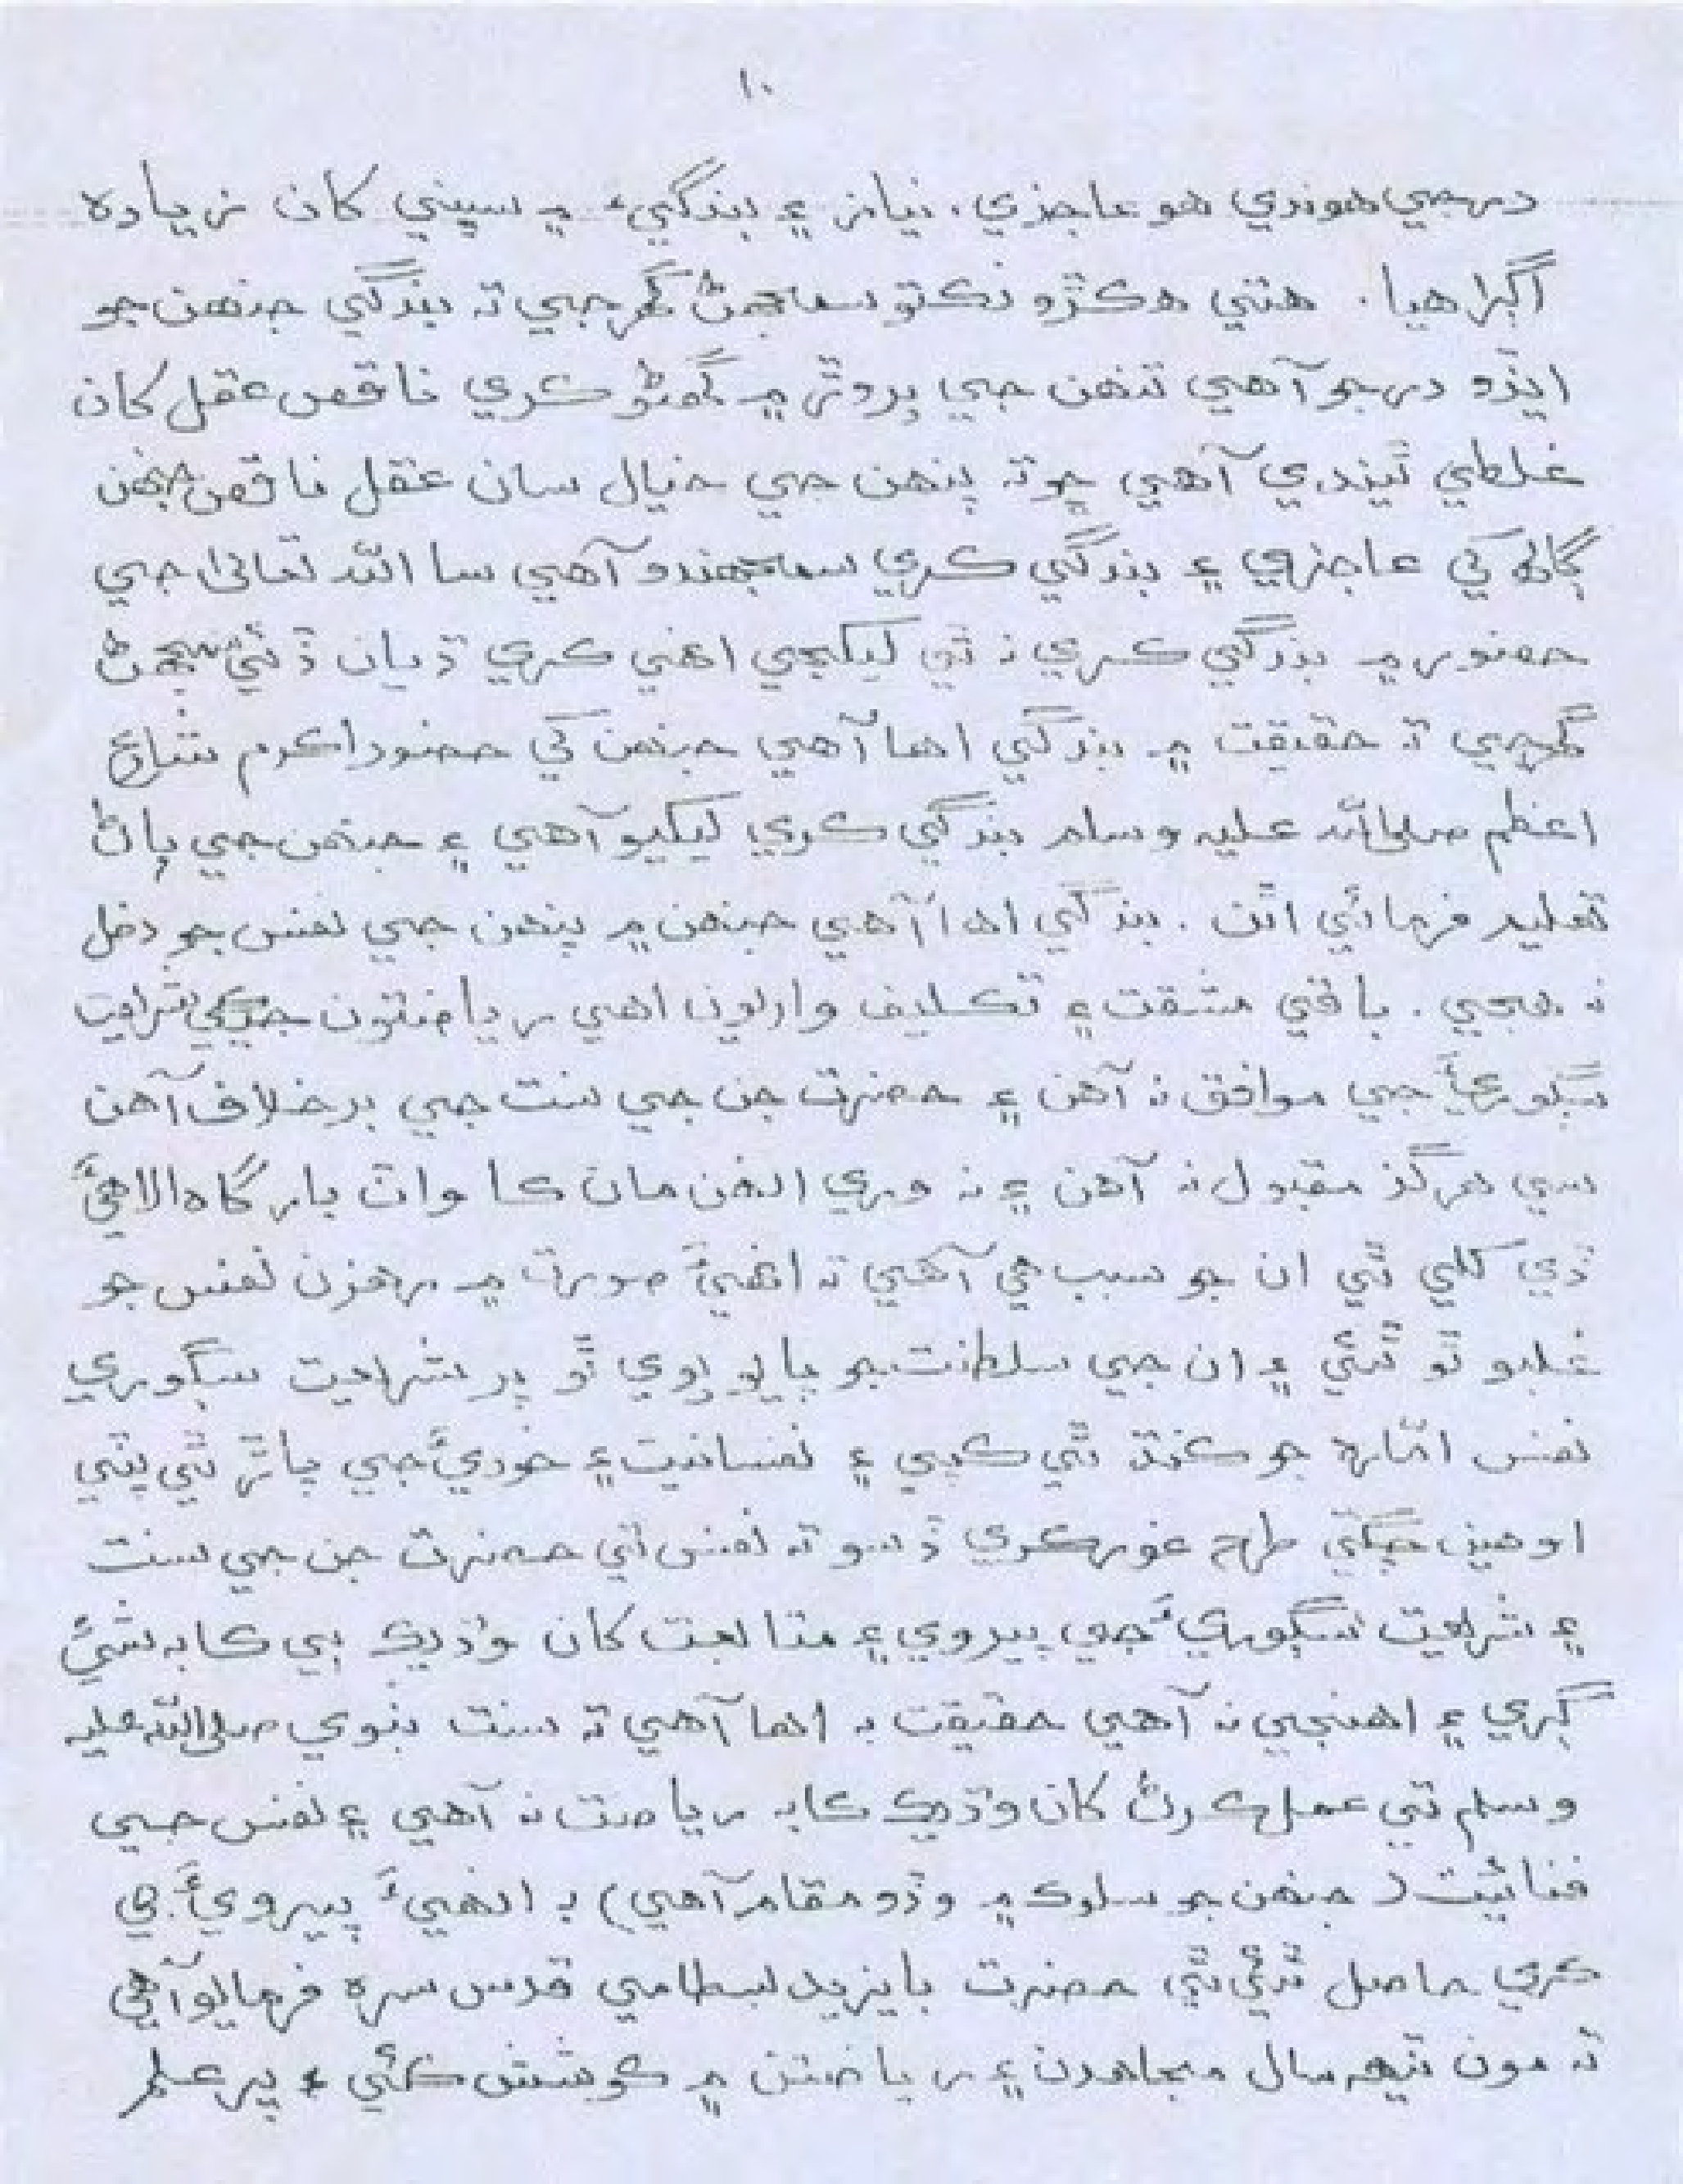 ۱۰
درجي هوندي هو عاجزي، نياز ۽ بندگيءَ ۾ سڀني کان زياده
اڳرا هيا. هتي هڪڙو نڪتو سمجهڻ گهرجي ته بندگي جنهن جو
ايڏو درجو آهي تنهن جي پروڙڻ ۾ گهڻو ڪري ناقص عقل کان
غلطي ٿيندي آهي ڇو ته پنهن جي خيال سان عقل ناقص جنهن
ڳالهه کي عاجزي ۽ بندگي ڪري سمجهندو آهي سا الله تعاليٰ جي
حضور ۾ بندگي ڪري نه ٿي ليکجي اهڙي ڪري ڌيان ڏئي سمجهڻ
گهرجي ته حقيقت ۾ بندگي اها آهي جنهن کي حضور اڪرم شارع
اعظم صلي الله عليه وسلم بندگي ڪري ليکيو آهي ۽ جنهن جي پاڻ
تعليم فرمائي اٿن. بندگي اها آهي جنهن ۾ پنهن جي نفس جو دخل
نه هجي. باقي مشقت ۽ تڪليف واريون اهي رياضتون جيڪي شريعت
سڳوريءَ جي موافق نه آهن ۽ حضرت جن جي سنت جي برخلاف آهن
سي هرگز مقبول نه آهن ۽ نه وري انهن مان ڪا واٽ بارگاه الاهيءَ
ڏي کلي ٿي ان جو سبب هي آهي ته انهيءَ صورت ۾ رهزن نفس جو
غلبو ٿو ٿئي ۽ ان جي سلطنت جو پايو پوي ٿو پر شريعت سڳوري
نفس اماره جو ڪنڌ ٿي ڪپي ۽ نفسانيت ۽ خوديءَ جي پاڙ ٿي پٽي
اوهين چڱي طرح غور ڪري ڏسو ته نفس تي حضرت جن جي سنت
۽ شريعت سڳوريءَ جي پيروي ۽ متابعت کان وڌيڪ ٻي ڪا به شيءِ
ڳري ۽ اهنجي نه آهي حقيقت به اها آهي ته سنت نبوي صلي الله عليه
وسلم تي عمل ڪرڻ کان وڌيڪ ڪا به رياضت نه آهي ۽ نفس جي
فنائيت (جنهن جو سلوڪ ۾ وڏو مقام آهي) به انهيءَ پيرويءَ جي
ڪري حاصل ٿئي ٿي حضرت بايزيد بسطامي قدس سره فرمايو آهي
ته مون ٽيهه سال مجاهدن ۽ رياضتن ۾ ڪوشش ڪئي، پر علم